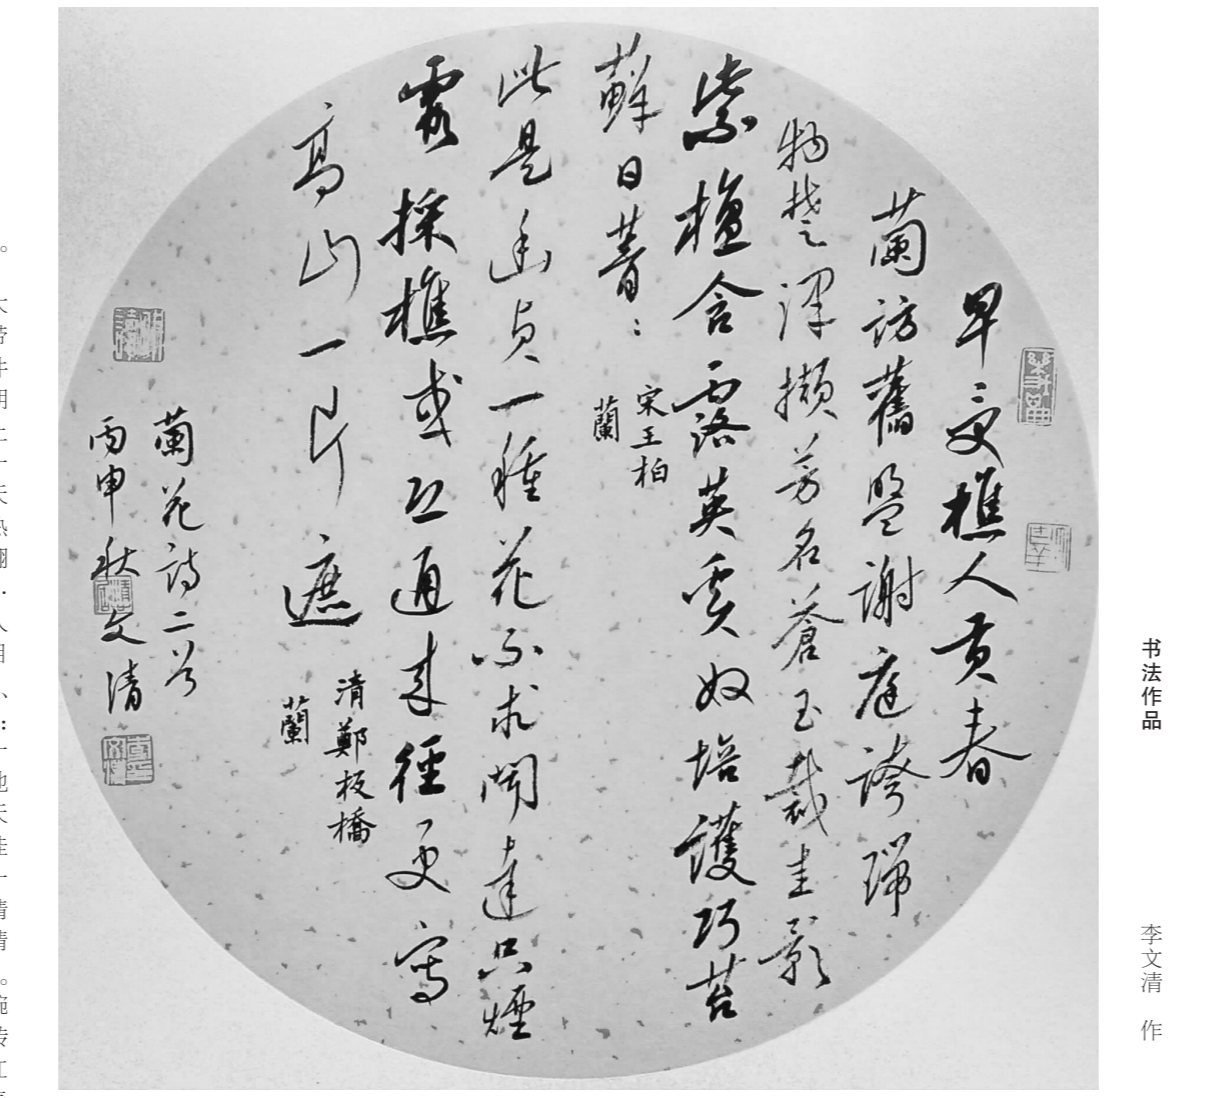 早受樵人貢春
蘭訪舊盟謝庭誇瑞
物楚澤擷芳名蒼玉裁圭影
紫檀含露英奚奴培護巧苔
蘚日菁菁
宋王柏
蘭
此是幽貞一種花不求聞達只煙
霞採樵或恐通來徑更寫
高山一片遮
清鄭板橋
蘭
蘭花詩二首
丙申秋文清
书法作品
李文清 作